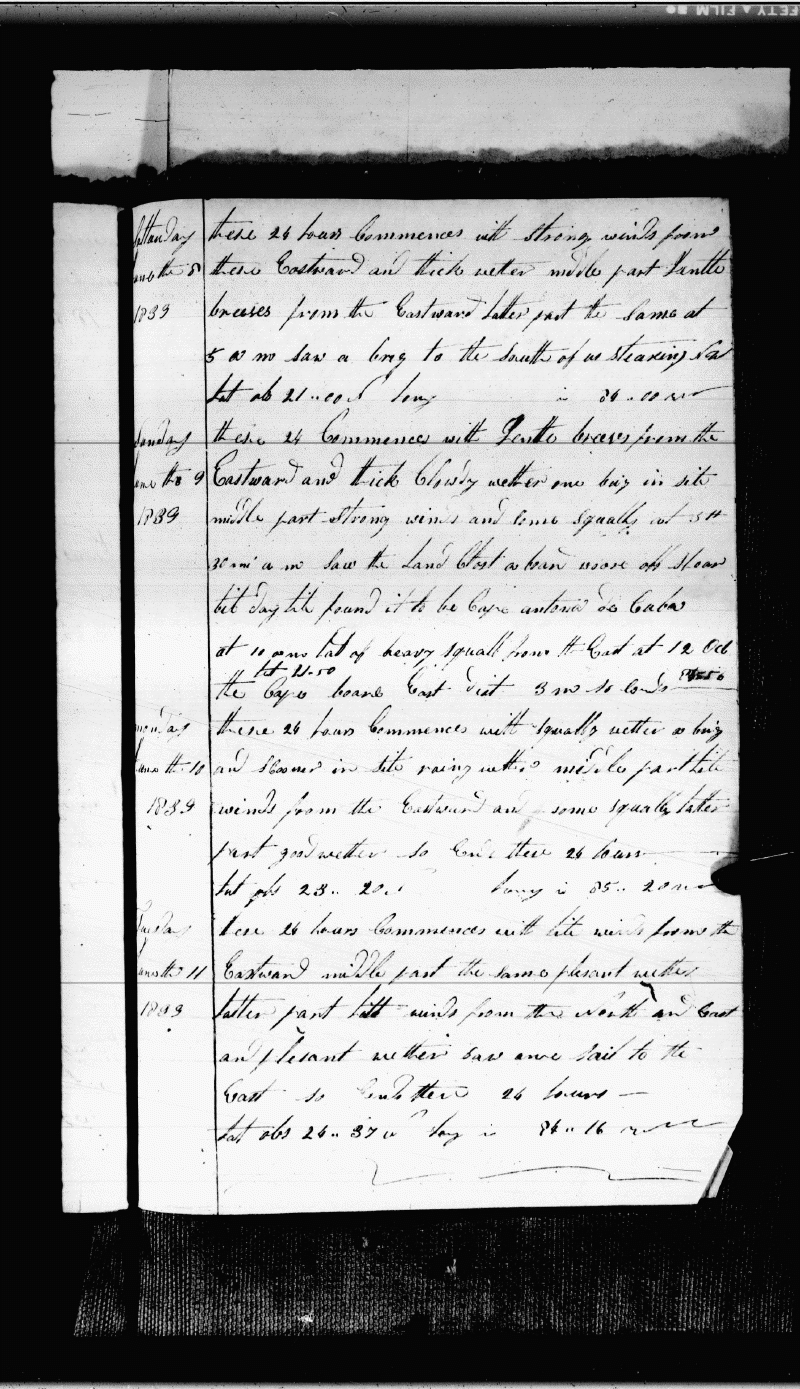 Satturday
June the 8
1839
these 24 hours Commences with Strong winds from
these Eastward and thick wether midle part Gentle
breeses from the Eastward latter part the Same at
5 a m saw a brig to the South of us stearing
Lat ob 21..00 N Long in 84..00 w
Sunday
June the 9
1839
these 24 Commences with Gentle breeses from the
Eastward and thick Clowdy wether one brig in site
middle part Strong winds and some Squalls at 3 H
30 mi a m Saw the Land Clost a board woore off Shoar
til day lite found it to be Cape antonia de Cuba
at 10 am heavy squall from the East at 12 Ock
Lat 21-50
the Cape boare East dist 3 m so ends
monday
June the 10
1839
these 24 hours Commences with squally wether a brig
and Scooner in site rainy wether midile part lite
winds from the Eastward and some squalls latter
part good wether so Ends these 24 hours
Lat obs 23..20 N Long in 85..20 w
Tuesday
June the 11
1839
these 24 hours Commences with lite winds from the
Eastward middle part the same plesant wether
latter part litt winds from the North and East
and plesant wether Saw one Sail to the
East so Ends these 24 hours
Lat obs 24..37 N Long in 84..16 w